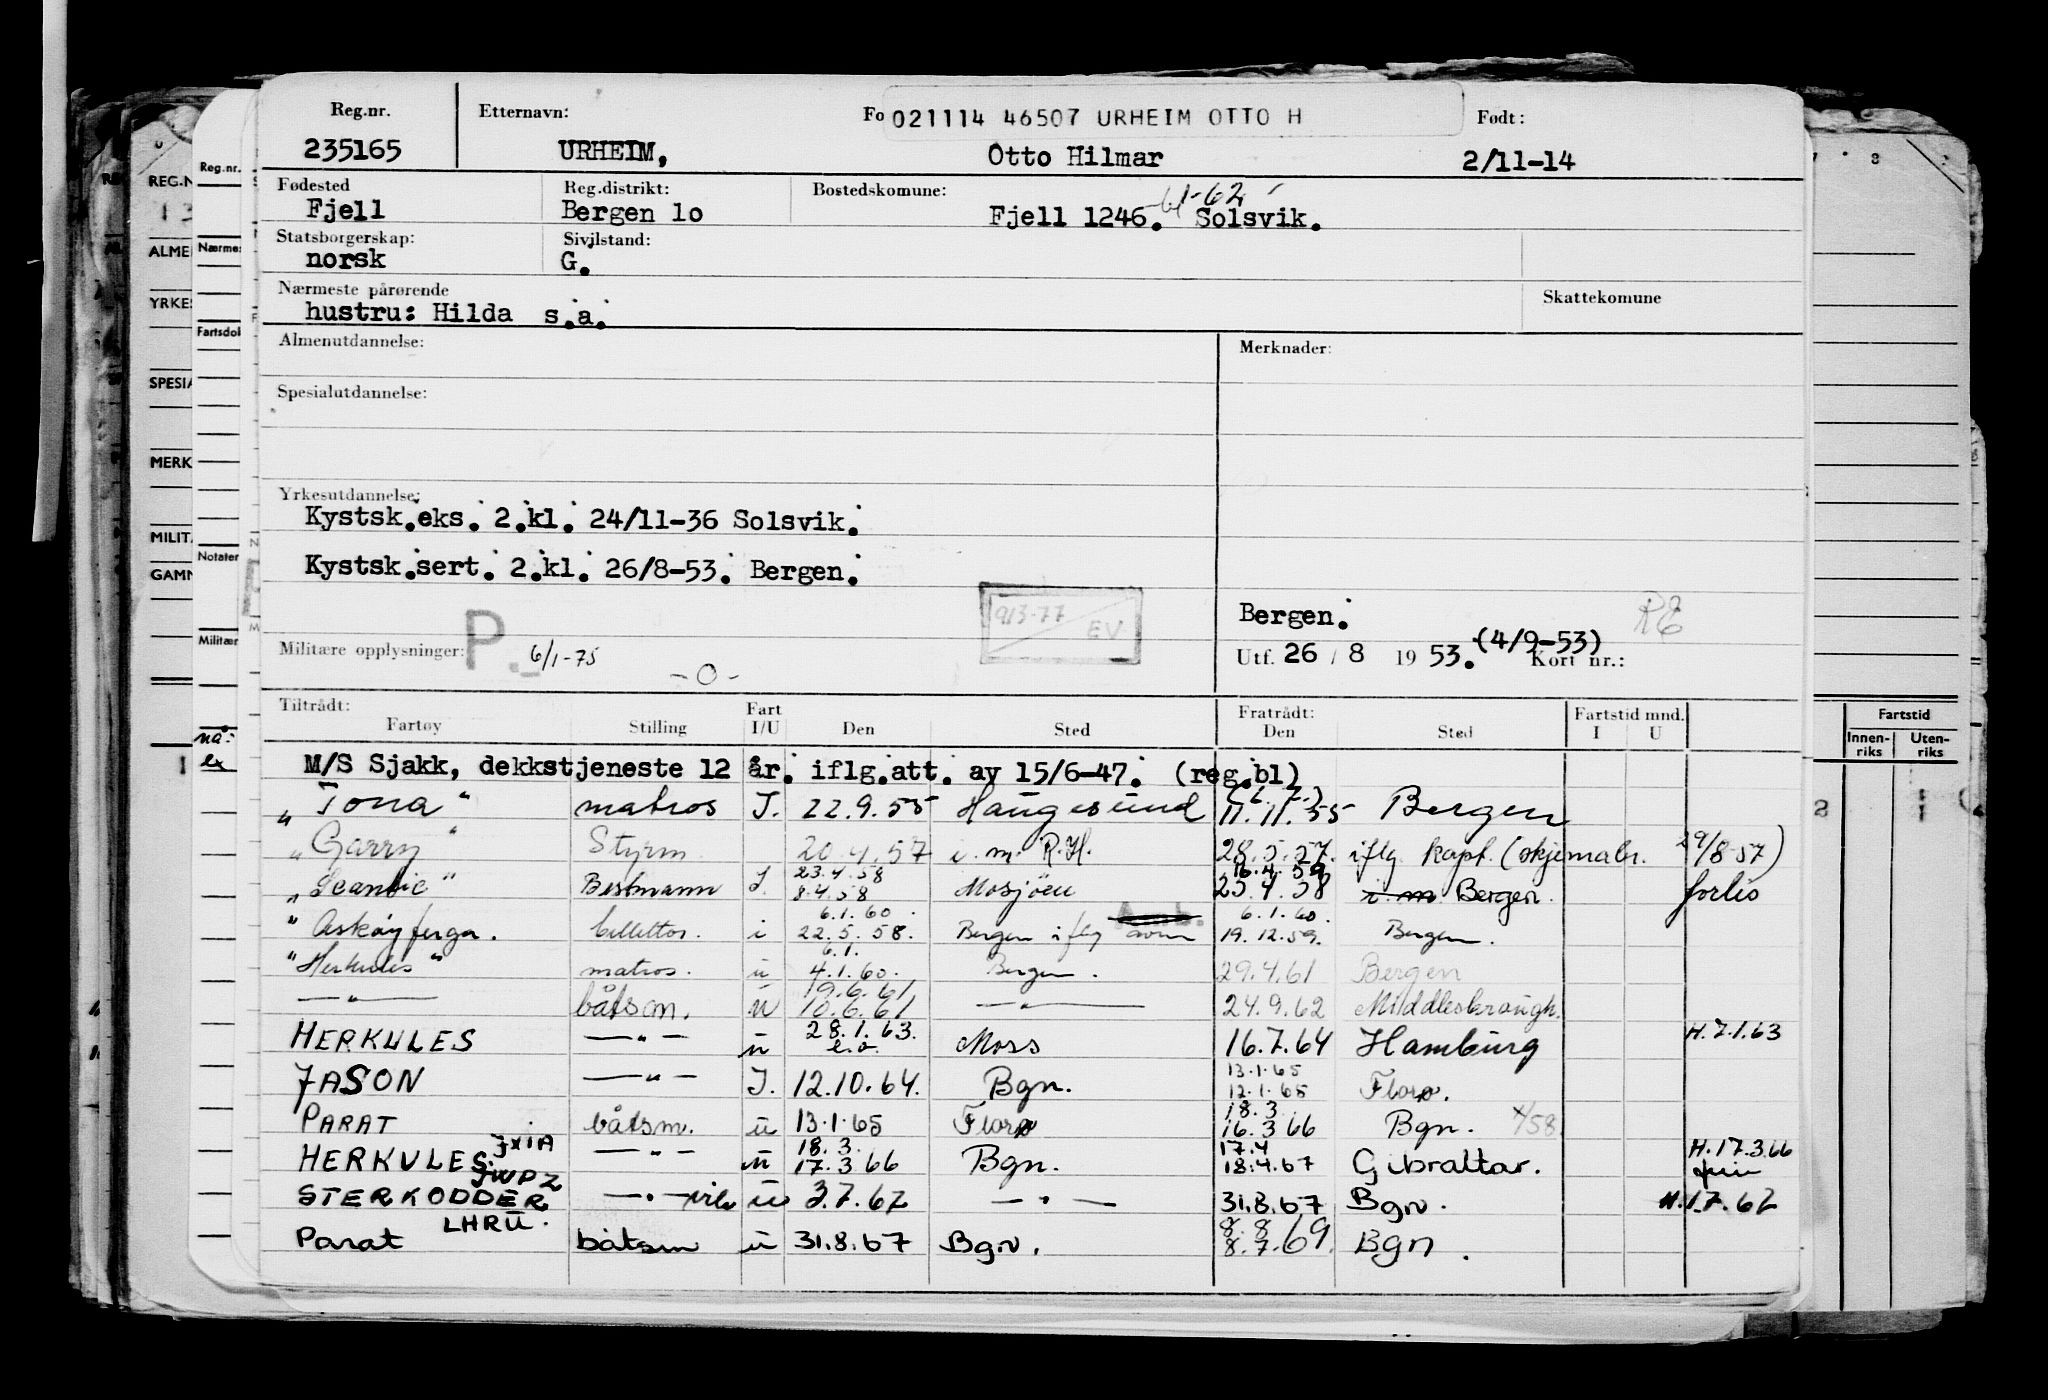 Reg.nr. Etternavn: Fo 021114 46507 URHEIM OTTO H Født:
235165 URHEIM, Otto Hilmar 2/11-14
Fødested Reg.distrikt: Bostedskomune: 61-62
Fjell Bergen 1o Fjell 1246. Solsvik.
Statsborgerskap: Sivilstand:
norsk G.
Nærmeste pårørende Skattekomune
hustru: Hilda s.a.
Almenutdannelse: Merknader:
Spesialutdannelse:
Yrkesutdannelse:
Kystsk.eks. 2.kl. 24/11-36 Solsvik.
Kystsk.sert. 2.kl. 26/8-53. Bergen.
9/3-77 EV
Bergen. RE
Militære opplysninger: P. 6/1-75 -0-
Utf. 26 / 8 1953. (4/9-53) Kort nr.:
Tiltrådt: Fart Fratrådt: Fartstid mnd.
Fartøy Stilling I/U Den Sted Den Sted I U
M/S Sjakk, dekkstjeneste 12 år. iflg.att. av 15/6-47. (reg.bl)
"Tona" matros I. 22.9.55 Haugesund 11.11.55 Bergen
"Garry" Styrm 20.4.57 i.m. R.H. 28.5.57. iflg kapt. (skjemabr. 29/8-57)
23.4.58 16.4.59
"Scantic" Bestmann I. 8.4.58 Mosjøen 23.4.58 i m Bergen. forlis
6.1.60. 6.1.60.
"Askøyferga. billettør. i 22.5.58. Bergen iflg 19.12.59. Bergen.
6.1.
"Herkules" matros. u 4.1.60. Bergen. 29.4.61 Bergen
19.6.61
—"— båtsm. u 10.6.61 —"— 24.9.62 Middlesbrough.
28.1.63.
HERKULES —"— u e.o. Moss 16.7.64 Hamburg H.7.1.63
13.1.65
JASON —"— I. 12.10.64. Bgn. 12.1.65 Florø.
18.3
PARAT båtsm. u 13.1.65 Florø 16.3 66 Bgn. 4/58
JXIA 18.3. 17.4
HERKULES. —"— u 17.3 66 Bgn. 18.4.67 Gibraltar. H.17.3.66
JWPZ
STERKODDER —"— u 3.7.67 —"— 31.8.67 Bgn. H.1.7.67
LHRU.
Parat båtsm u 31.8.67 Bgn. 8.8 8.7.69. Bgn.
REG.N
ALME
YRKES
SPESIA
MERK
MILIT
GAMN
Reg.nr.
Nærmes
Fartsdok
Notater
Militær
Fartstid
Innen-riks Uten-riks